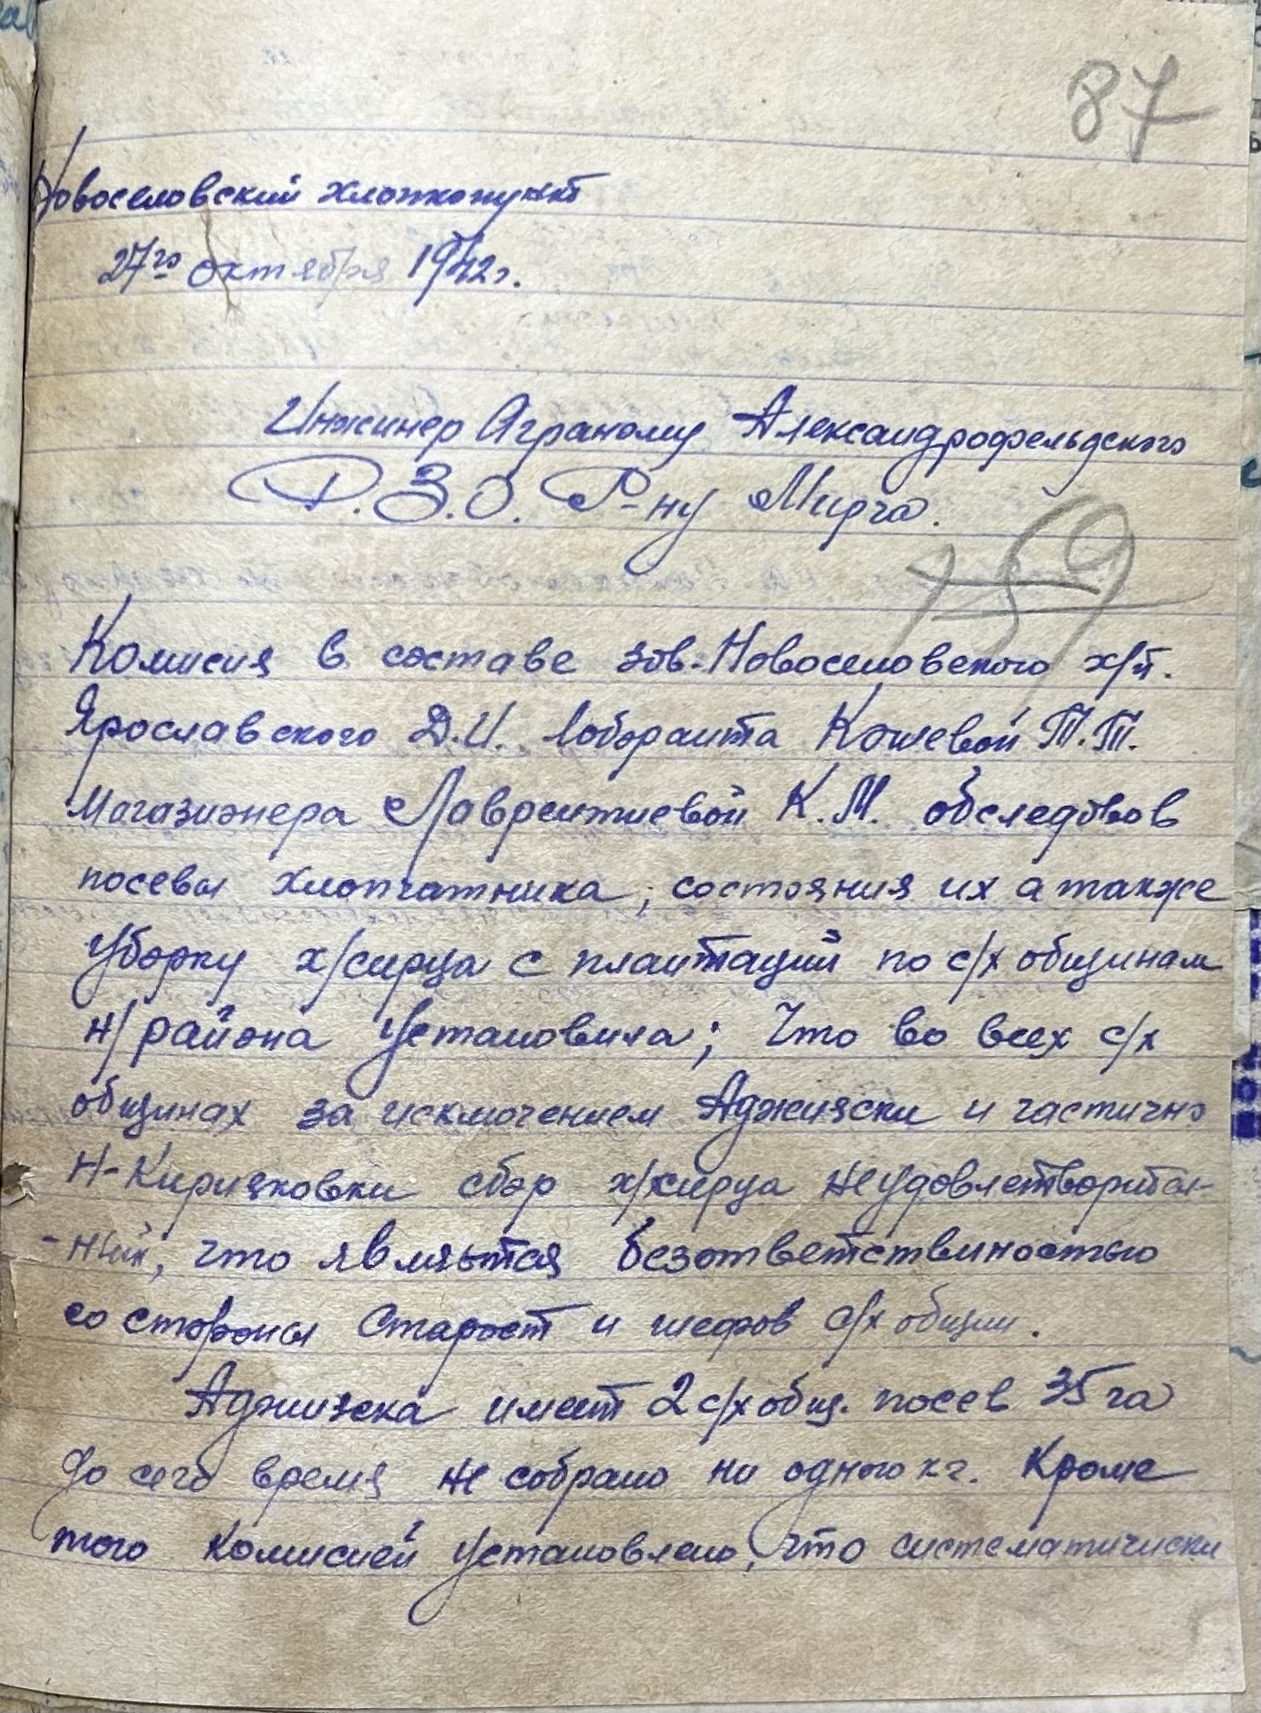 87
Новоселовский хлопкопункт
27го Октября 1942г.
Инжинер Аграному Александрофельдского
Р.З.О. Р-ну Мирча.
159
Комисия в составе зав. Новоселовского х/п.
Ярославского Д.И. лаборанта Кошевой Т.Т.
Магазионера Лаврентиевой К.М. обследовав
посевы хлопчатника, состояния их а также
уборку х/сирца с плантаций по с/х общинам
н/района установила; Что во всех с/х
общинах за исключением Аджияски и частично
Н-Киряковки сбор х/сирца неудовлетворител-
-ный, что является безответствиностью
со стороны Старост и шефов с/х общин.
Аджияска имеет 2 с/х общ. посев 35 га
до сего время не собрано ни одного кг. Кроме
того комисией установлено, что систематически